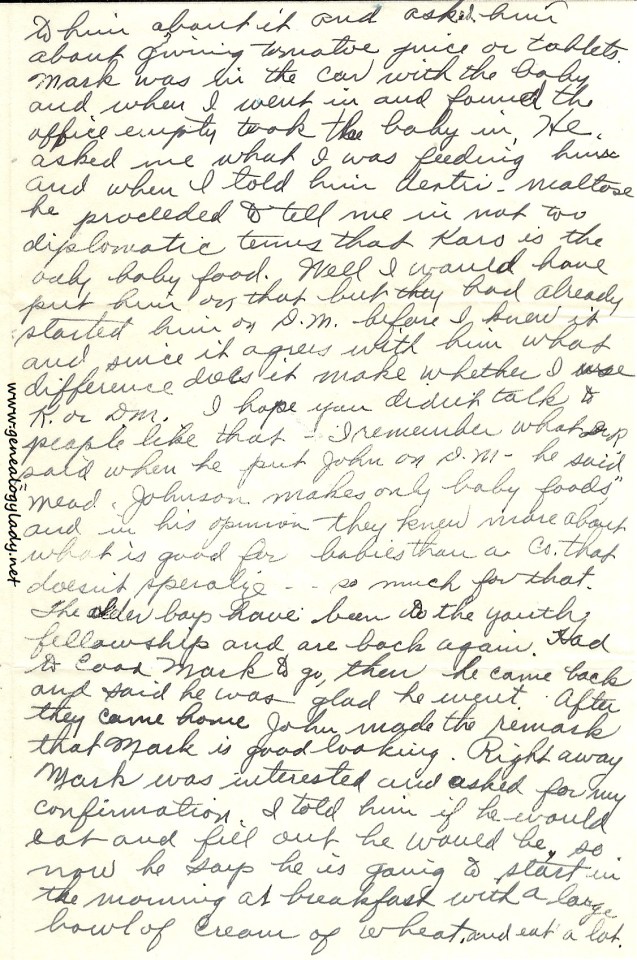 to him about it and asked him
about giving tomatoe juice or tablets.
Mark was in the car with the baby
and when I went in and found the
office empty took the baby in, He
asked me what I was feeding him
and when I told him dextri-maltose
he proceded to tell me in not too
diplomatic terms that Karo is the
only baby food. Well I would have
put him on that but they had already
started him on D.M. before I knew it
and since it agrees with him what
difference does it make whether I use
K. or DM. I hope you didn't talk to
people like that - I remember what Dr R
said when he put John on D.M- he said
"Mead Johnson makes only baby foods"
and in his opinion they knew more about
what is good for babies than a Co. that
doesn't speralize - - so much for that.
The older boys have been to the youth
fellowship and are back again. Had
to coax Mark to go, then he came back
and said he was glad he went. After
they came home John made the remark
that Mark is good looking. Right away
Mark was interested and asked for my
confirmation. I told him if he would
eat and fill out he would be, so
now he says he is going to start in
the morning at breakfast with a large
bowl of cream of wheat. and eat a lot.
www.genealogylady.net